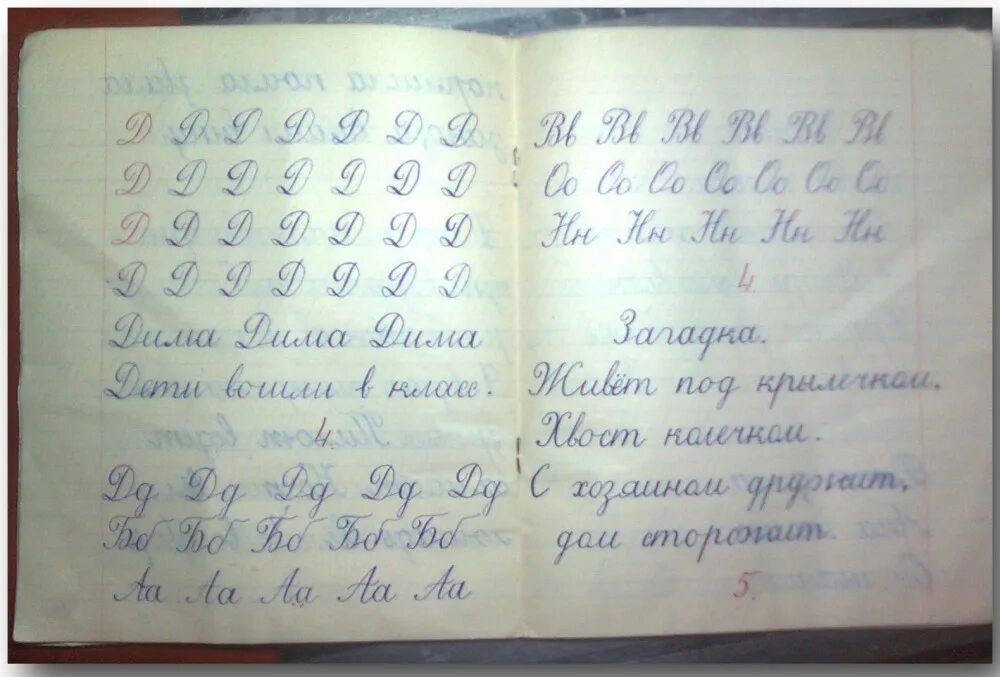 Д Д Д Д Д Д Д
Д Д Д Д Д Д Д
Д Д Д Д Д Д Д
Д Д Д Д Д Д Д
Дима Дима Дима
Дети вошли в класс.
4.
Дд Дд Дд Дд Дд
Бб Бб Бб Бб Бб
Аа Аа Аа Аа Аа
Вв Вв Вв Вв Вв Вв
Оо Оо Оо Оо Оо Оо Оо
Нн Нн Нн Нн Нн
4.
Загадка.
Живёт под крылечком,
Хвост колечком.
С хозяином дружит,
дом сторожит.
5.